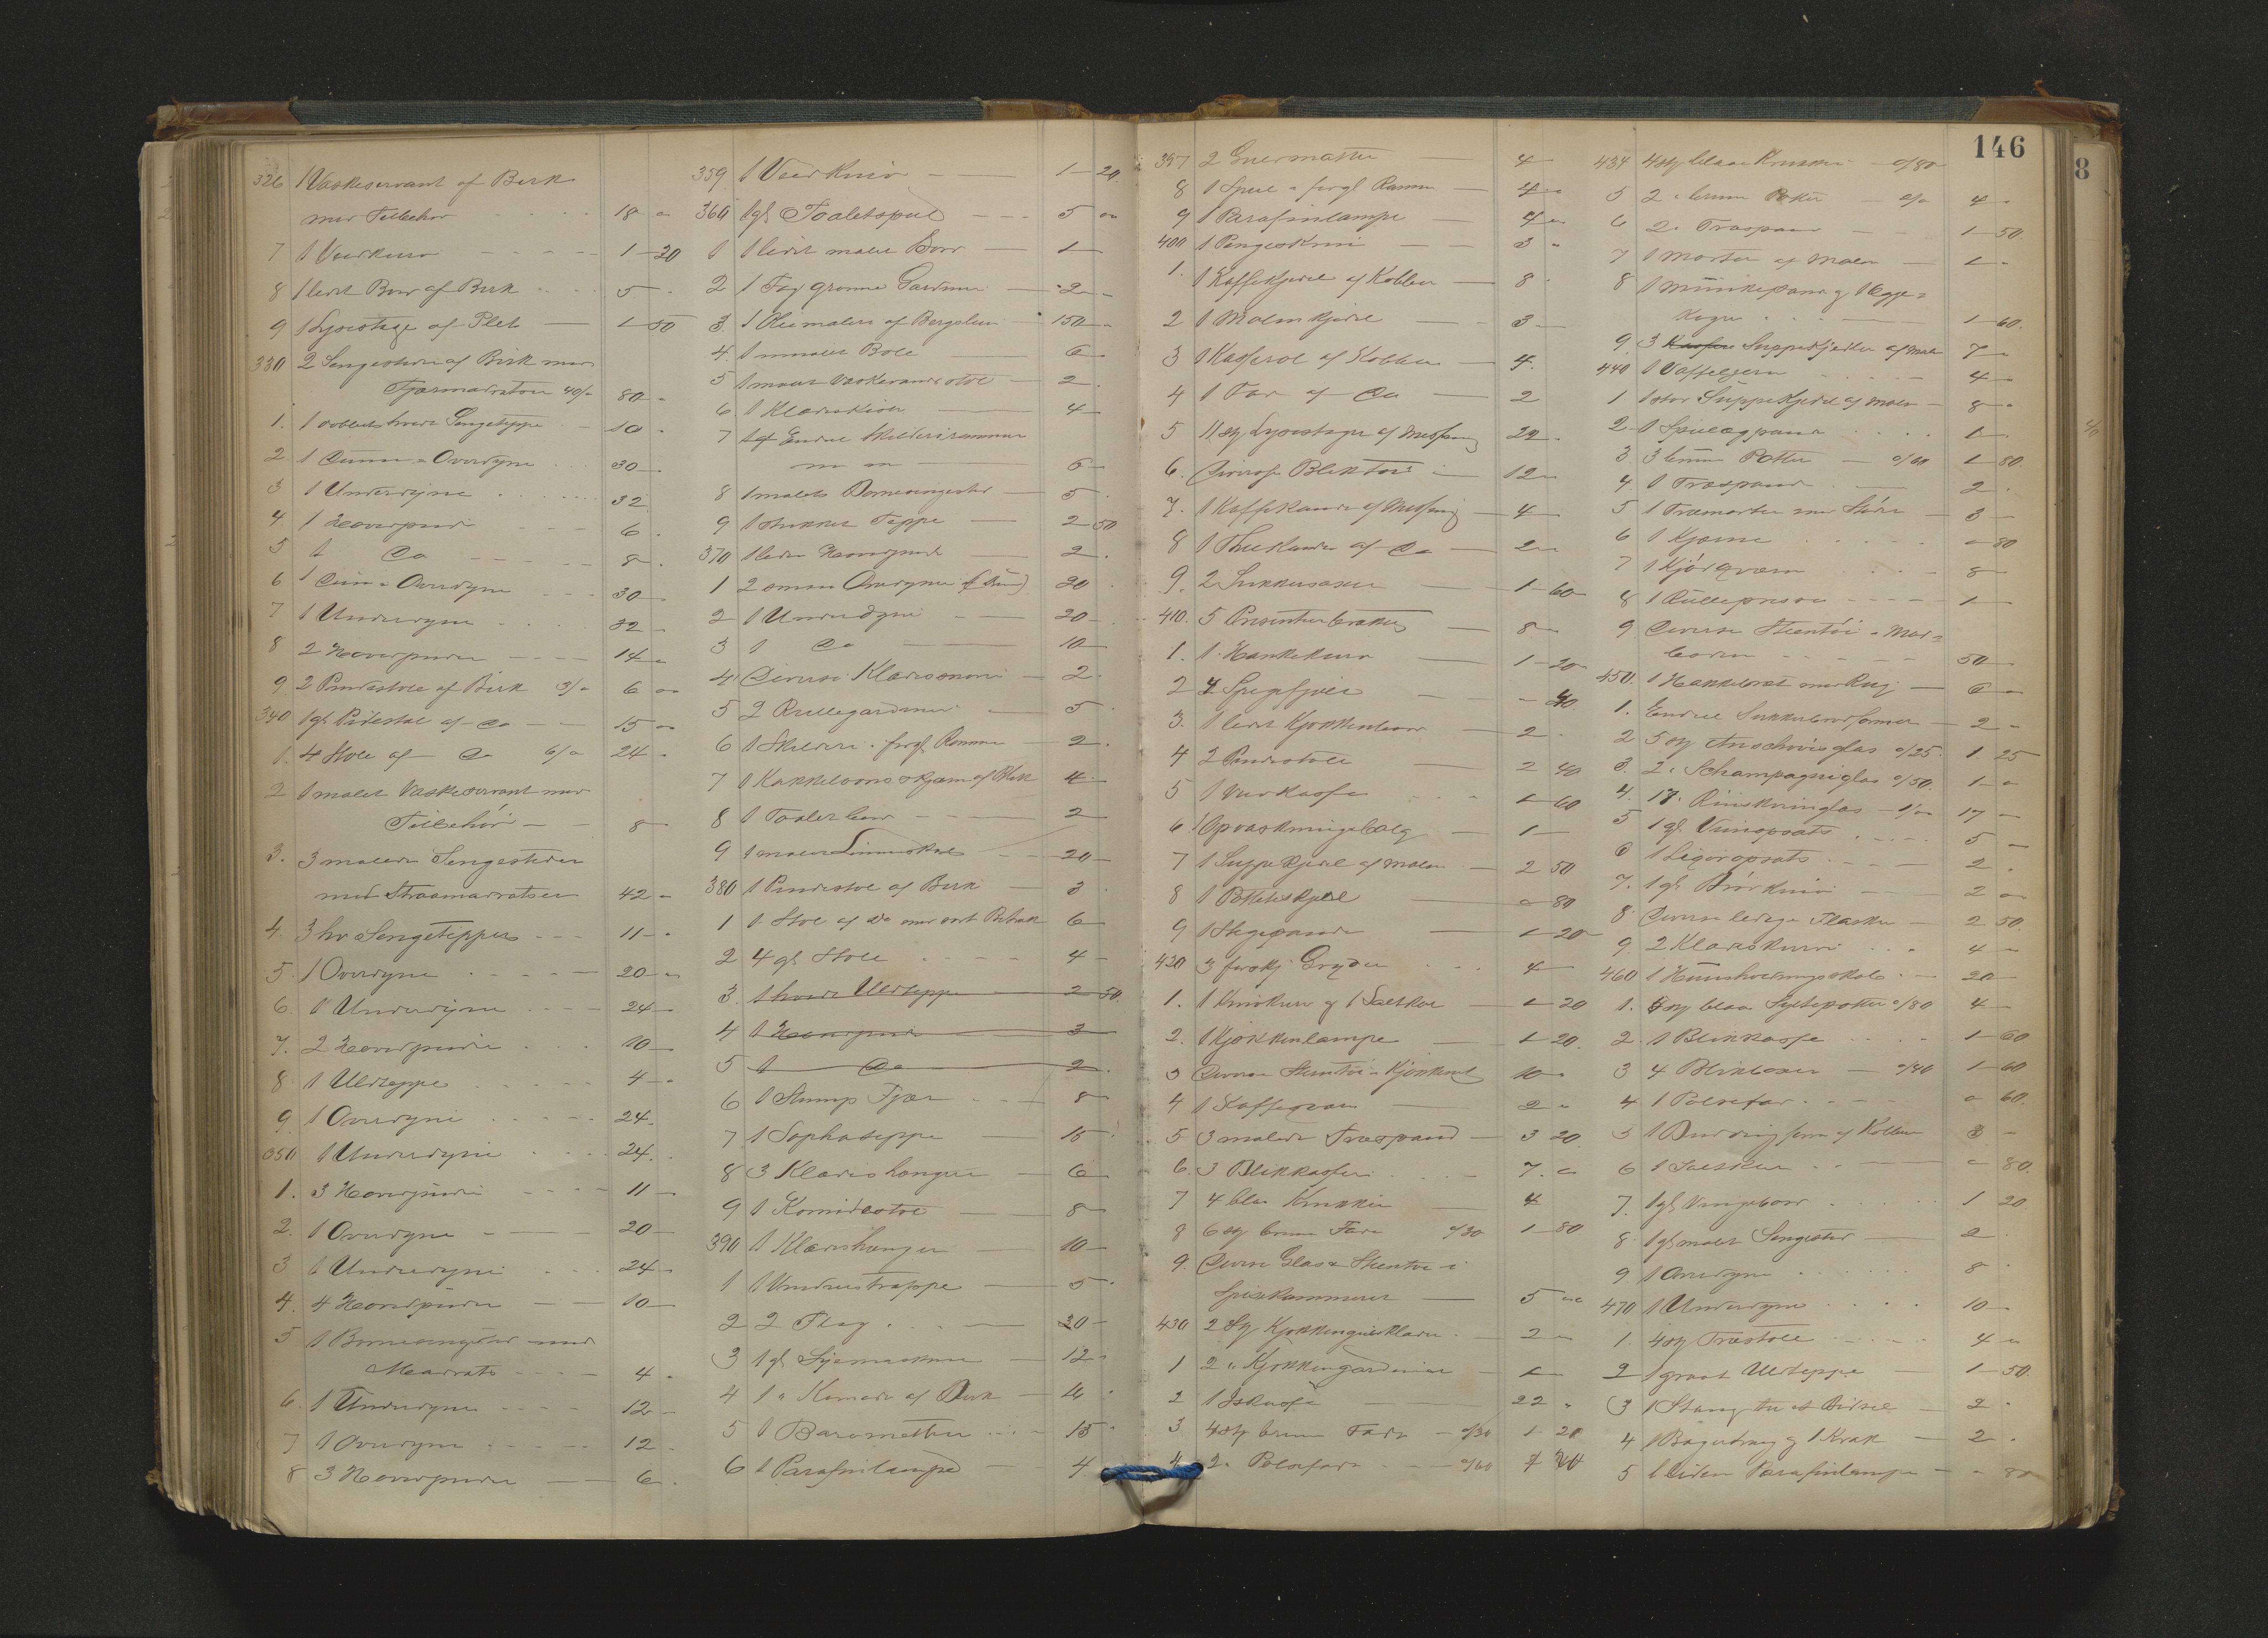 146
8
326 1 Vaskeservant af Birk
med Tilbehør 18 -
7 1 Vedkurv 1 20
8 1 lidet Bord af Birk 5 -
9 1 Lysestage af Plet 1 50
330 2 Sengesteder af Birk med
Fjærmadratser 40/- 80 -
1. 1 dobbelt hvidt Sengeteppe 10 -
2 1 Duun- Overdyne 30 -
3 1 Underdyne 32
4. 1 Hovedpude 6 -
5 1 Do 8 -
6 1 Duun- Overdyne 30 -
7 1 Underdyne 32 -
8 2 Hovedpuder 14 -
9 2 Pindestole af Birk 3/- 6 -
340 1 gl. Pidestal af Do 15 -
1. 4 Stole af Do 6/- 24 -
2 1 malet Vaskeservant med
Tilbehör 8 -
3. 3 malede Sengesteder
med Straamadratser 42 -
4. 3 hv Sengetepper 11 -
5 1 Overdyne 20 -
6. 1 Underdyne 24 -
7. 2 Hovedpuder 10 -
8 1 Uldteppe 4 -
9 1 Overdyne 24 -
350 1 Underdyne 24 -
1. 3 Hovedpuder 11 -
2. 1 Overdyne 20 -
3 1 Underdyne 24 -
4. 4 Hovedpuder 10 -
5 1 Borneseng med
Madrats 4 -
6. 1 Underdyne 12 -
7 1 Overdyne 12 -
8 3 Hovedpuder 6 -
359 1 Vedkurv 1 20
360 1 gl. Toaletspeil 5 -
1 1 lidet malet Bord 1 -
2 1 Fag grønne Gardiner 2 -
3. 1 Oliemaleri af Bergslien 150 -
4. 1 malet Bole 6 -
5 1 malet Vaskevandsstol 2 -
6. 1 Klædeskive 4 -
7 Endel Skilderirammer
m m 6 -
8 1 malets Borneseng 5 -
9 1 strikket Teppe 2 50
370 1 liden Hovedpude 2 -
1 2 smaa Overdyner (Dun) 20
2 1 Underdyne 20 -
3 1 Do 10 -
4 Diverse Klædessnore 2 -
5 2 Rullegardiner 5 -
6 1 Skilderi i forgl. Ramme 2 -
7 1 Kakkelovnsskjærm af Blik 4 -
8 1 Toaletbord 2
9 1 malet Linnedskab 20 -
380 1 Pindestol af Birk 3 -
1 1 Stol af Do med sort Betræk 6 -
2 4 gl. Stole 4 -
3. 1 hvidt Uldteppe 2 50
4 1 Hovedpude 3
5 1 Do 2 -
6 1 Slump Fjær 8 -
7 1 Sophateppe 15
8 3 Klædeshænger 6 -
9 1 Komodestol 8 -
390 1 Klædeshænger 10 -
1 1 Vinduestrappe 5 -
2 2 Flag 30 -
3 1 gl. Syemaskine 12 -
4 1 " Komode af Birk 16 -
5 1 Barometter 15 -
6 1 Parafinlampe 4 -
397 2 Gulvmatter 4 -
8 1 Speil i forgl. Ramme 4 -
9 1 Parafinlampe 4 -
400 1 Pengeskrin 3 -
1. 1 Kaffekjedel af Kobber 8 -
2 1 Malmkjedel 3 -
3 1 Kasserol af Kobber 4 -
4 1 Fad af Do 2
5 11 stk Lysestager af Messing 22 -
6. Diverse Bliktøi 12 -
7. 1 Kaffekande af Messing 4 -
8 1 Theelander af Do 2 -
9. 2 Sukkersaxer 1 60
410. 5 Presenterbrætter 8 -
1. 1 Hankekurv 1 20
2 Spegefjæle - 40
3. 1 lidet Kjøkkenbord 2 -
4 2 Pindestole 2 40
5 1 Vedkasse 1 60
6 1 Opvaskningsbalg 1 -
7 1 Suppekjedel af Malm 2 50
8 1 Potteteskjedel - 80
9 1 Stegepande 1 20
420 3 forskj. Gryder 4 -
1. 1 Knivkurv og 1 Saltkar 1 20
2. 1 Kjøkkenlampe 1 20
3 Diverse Stentøi i Kjøkkenet 10 -
4 1 Kaffekværn 2 -
5 3 malede Træspand 3 20
6. 3 Blikkasser 7 -
7 4 blaa Krukker 4
8 6 stk brune Fade a/30 1 80
9. Diverse Glas & Stentøi i
Spisekammeret 5 -
430 2 Stk Kjøkkengulvklæder 2 -
1 2 " Kjøkkengardiner 1 -
2 1 Iskasse 22 -
3 4 stk brune Fade a/30 1 20
4 2 " Polsefade a/60
434 4 stk blaae Krukker a/80
5 2 " brune Potter 4 -
6 2 " Træspand 1 50
7 1 Morter af Malm 1 -
8 1 Munkepande og 1 Egge-
koger 1 60
9 3 Suppekjedler af Malm 7 -
440 1 Vaffeljern 4 -
1 1 stor Suppekjedel af Malm 8 -
2 1 Speilægpande 1 -
3 3 brune Potter a/60 1 80
4. 1 Træspand 2 -
5 1 Træmorter med Støder 3 -
6 1 Kjærne - 80
7 1 Kjödqværn 8 -
8 1 Rullepresse 1 -
9 Diverse Stentöi i Mad-
boden 50 -
450. 1 Hakkebræt med Kniv 6 -
1. Endel Sukkerbrødformer 2 -
2 5 stk Anschovisglas a/25 1 25
3. 2 " Schampagneglas a/50 1 -
4. 17 " Rinskvinglas 1/- 17 -
5 1 gl. Vinopsats 5 -
6 1 Liqöropsats 2 -
7. 1 gl. Brödkniv 2 -
8 Diverse ledige Flasker 2 50
9. 2 Klædeskurve 4 -
460 1 Huusholdningsskab 20 -
1. 5 stk blaa Syltepotter a/80 4 -
2. 1 Blikkasse 1 60
3 4 Blikboxer a/40 1 60
4 1 Polsefad - 60
5 1 Buddingform af Kobber 3 -
6 1 Saltkar - 80
7. 1 gl. Vingebord 1 20
8 1 gl. malet Sengested 2 -
9 1 Overdyne 8 -
470 1 Underdyne 10 -
1. 4 stk Træstole 4 -
2 1 graat Uldteppe 1 50
3 1 Stang til et Bidsel 2 -
4 1 Bagertraug og 1 Krak 2 -
5 1 liden Parafinlampe - 80